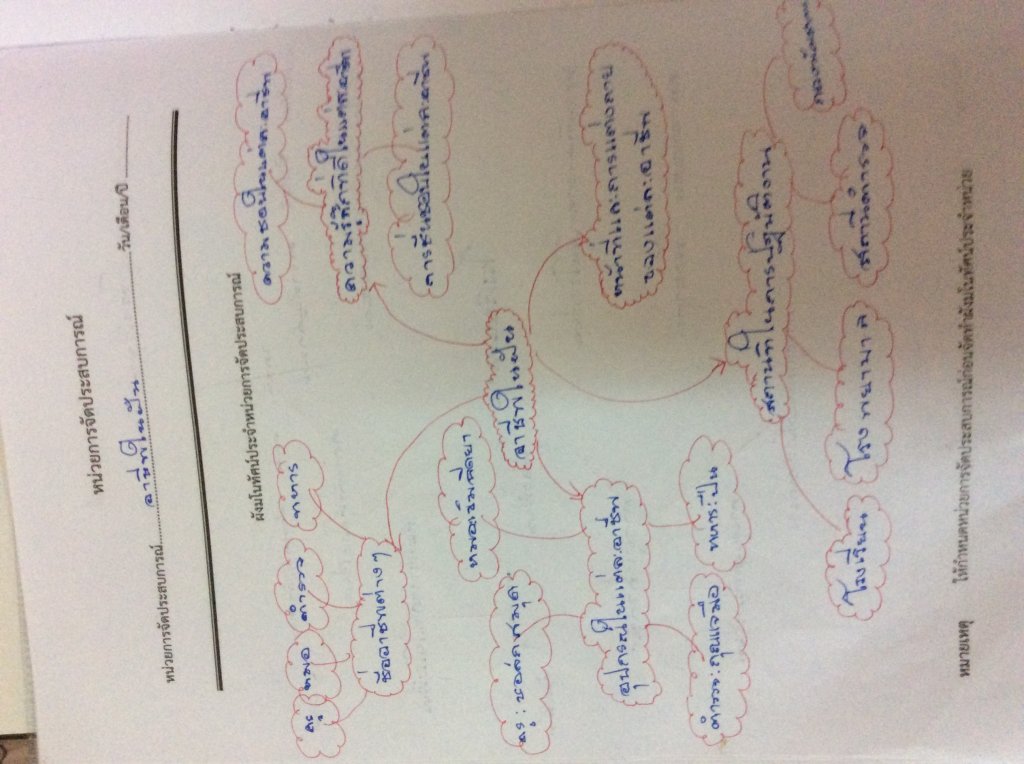 หน่วยการจัดประสบการณ์
หน่วยการจัดประสบการณ์ อาชีพในฝัน วัน/เดือน/ปี
ผังมโนทัศน์ประจำหน่วยการจัดประสบการณ์
ครู
หมอ
ตำรวจ
ทหาร
ชื่ออาชีพต่างๆ
ความชอบในแต่ละอาชีพ
ความรู้สึกที่ดีในแต่ละอาชีพ
การชื่นชอบในแต่ละอาชีพ
อาชีพในฝัน
หมอ:เข็มฉีดยา
ครู:ชอล์ค สมุด
อุปกรณ์ในแต่ละอาชีพ
ตำรวจ:กุญแจมือ
ทหาร:ปืน
หน้าที่และการแต่งกาย
ของแต่ละอาชีพ
สถานที่ในการปฏิบัติงาน
โรงเรียน
โรงพยาบาล
สถานีตำรวจ
หมายเหตุ ให้กำหนดหน่วยการจัดประสบการณ์ก่อนจัดทำผังมโนทัศน์ประจำหน่วย